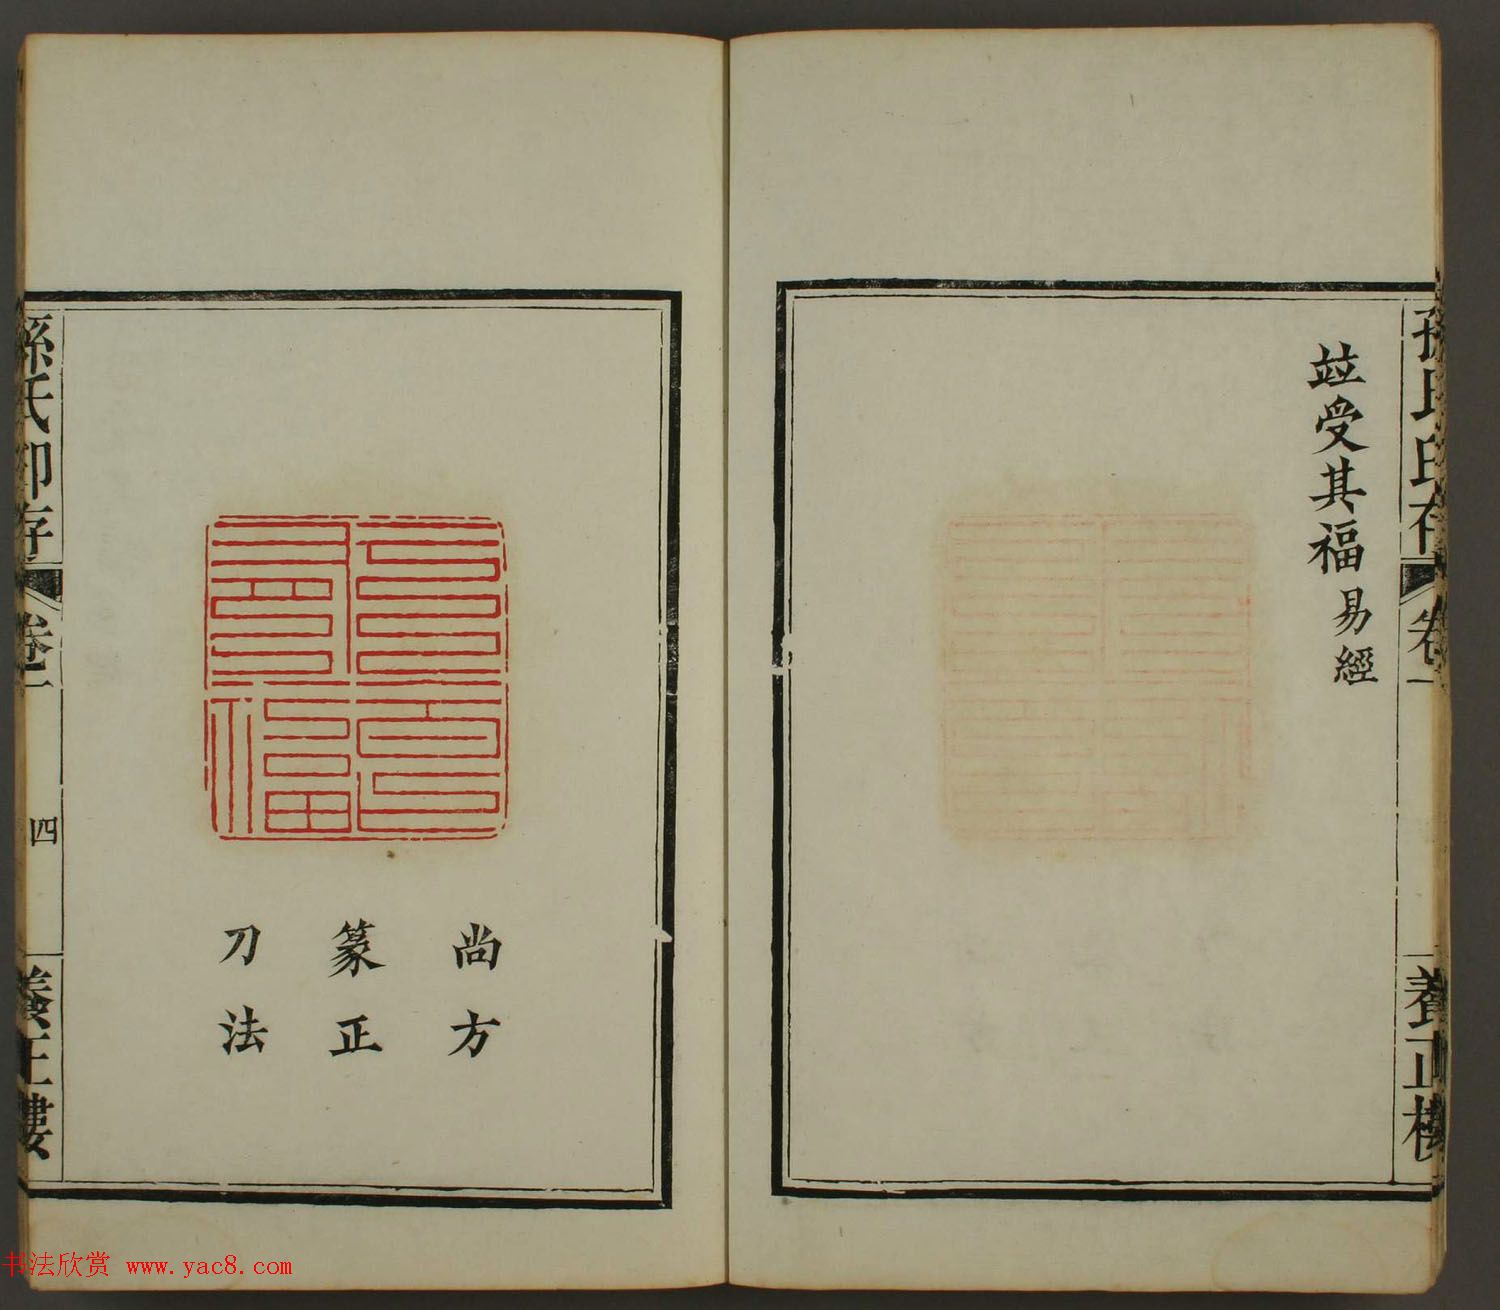 並受其福 易經
孫氏印存
卷一
養正樓
尚方
篆正
刀法
孫氏印存
卷一
四
養正樓
书法欣赏 www.yac8.com